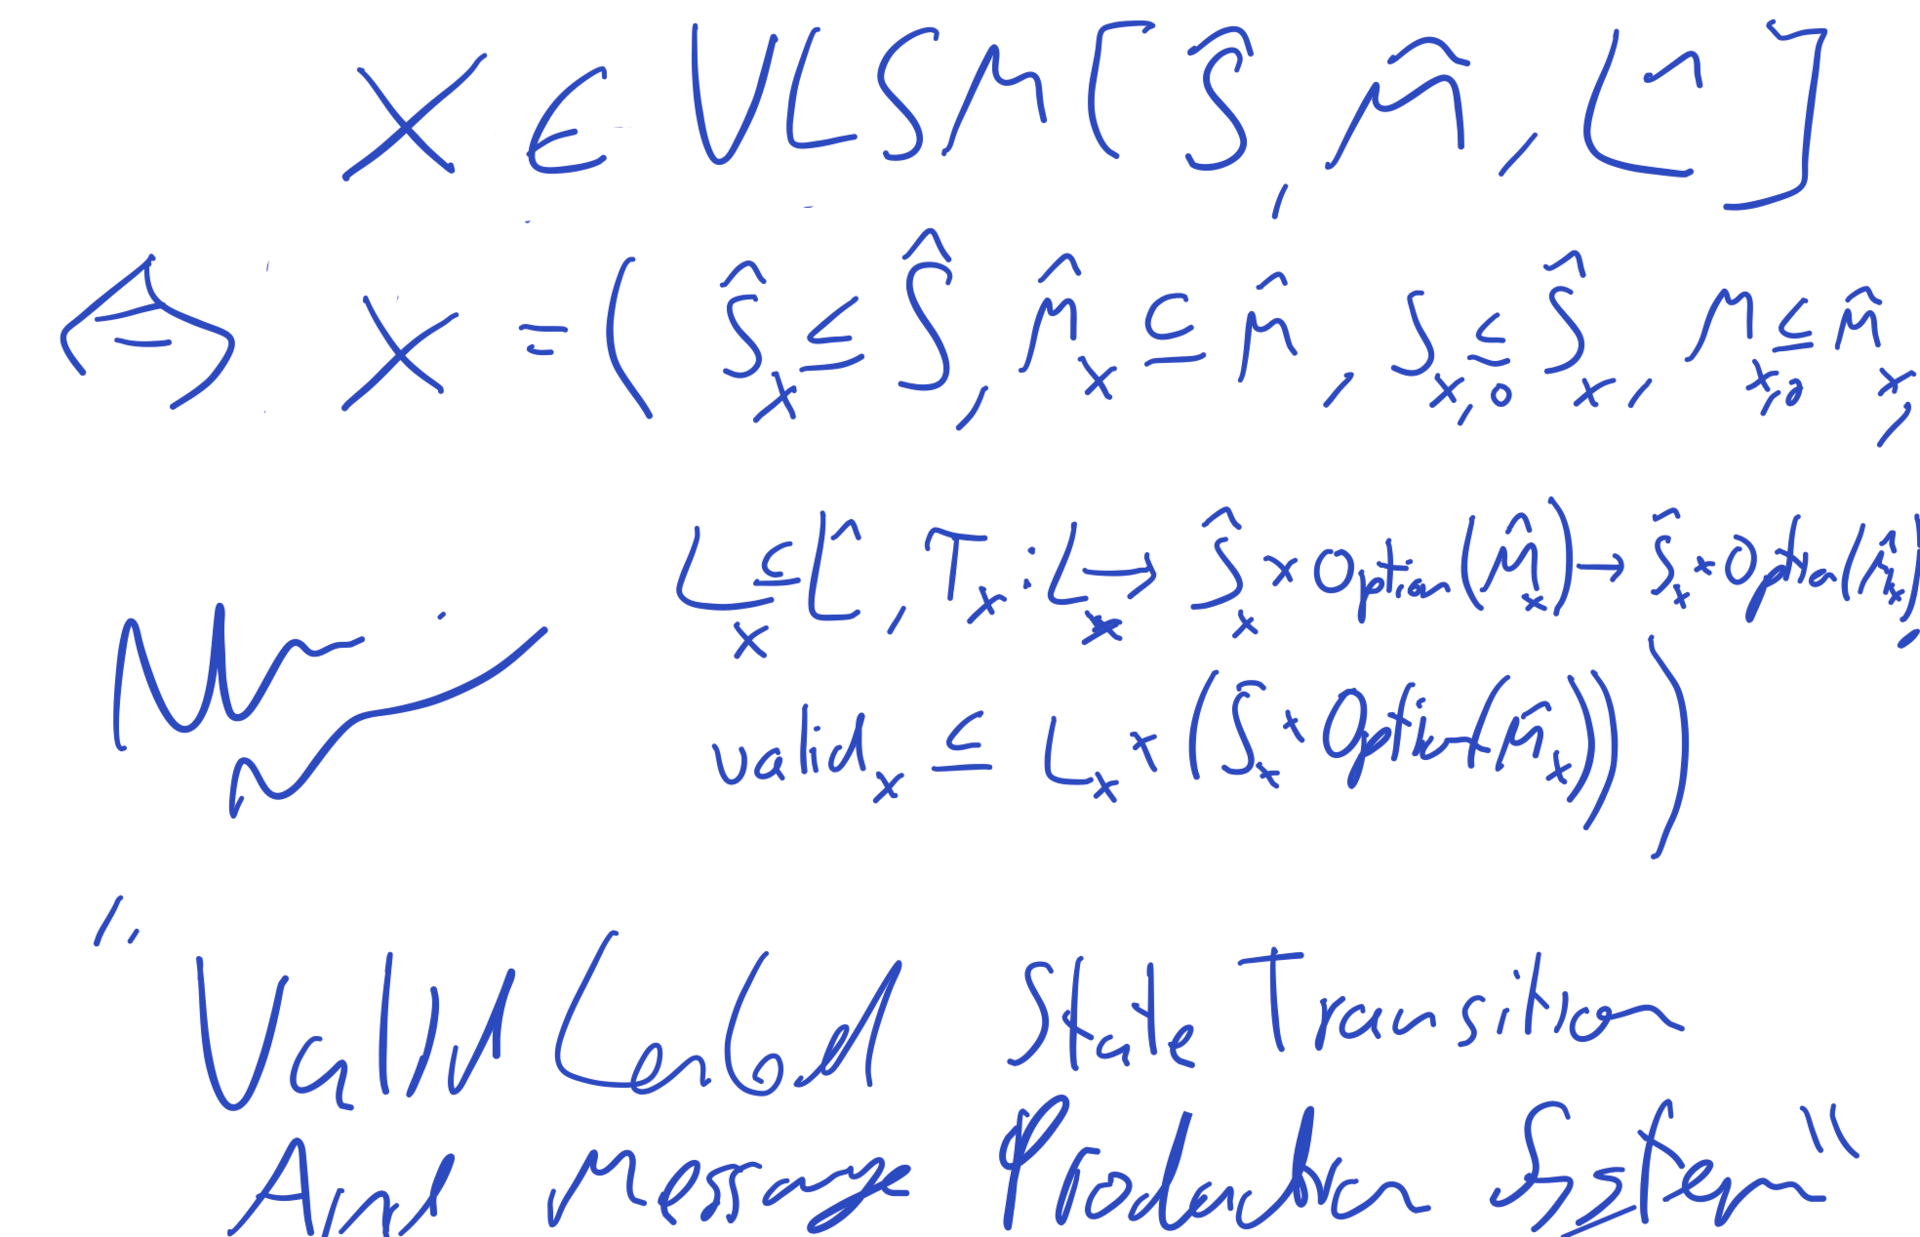 X ∈ VLSM[Ŝ, M̂, L̂]
⇔ X = (Ŝ_X ⊆ Ŝ, M̂_X ⊆ M̂, S_X,0 ⊆ Ŝ_X, M_X,0 ⊆ M̂_X,
L_X ⊆ L̂, T_X : L_X → Ŝ_X × Option(M̂_X) → Ŝ_X × Option(M̂_X),
valid_X ⊆ L_X × (Ŝ_X × Option(M̂_X)))
"Valid Labeled State Transition
And Message Production System"